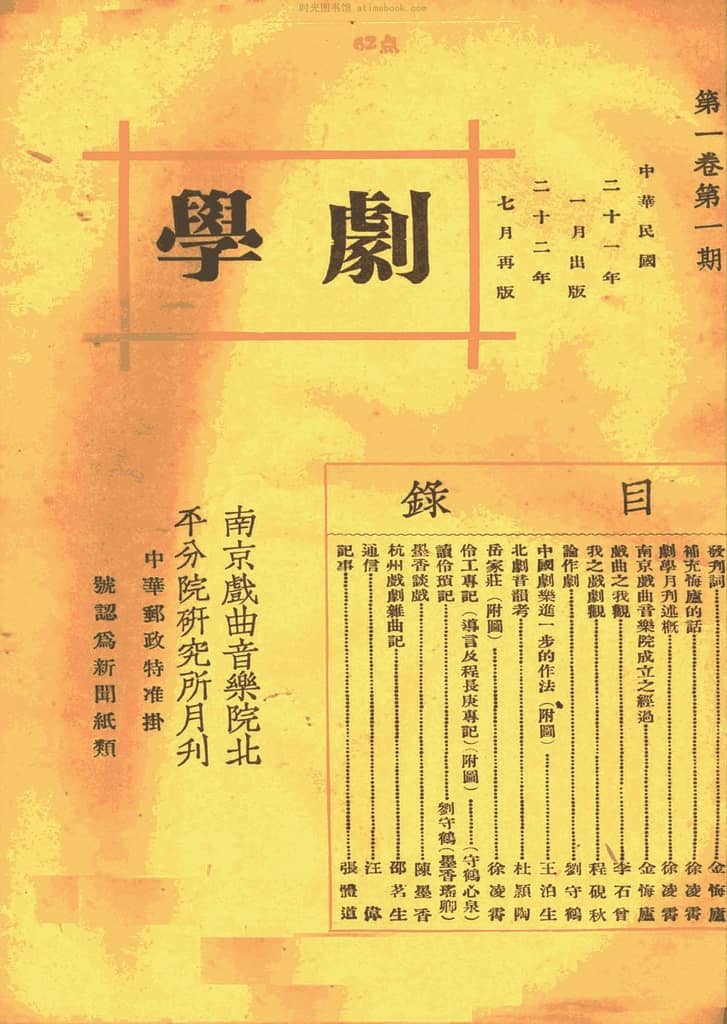 时光图书馆 atimebook.com
62点
第一卷第一期
中華民國
二十一年
一月出版
二十二年
七月再版
劇學
目錄
發刊詞 金悔廬
補充悔廬的話 徐凌霄
劇學月刊述概 徐凌霄
南京戲曲音樂院成立之經過 金悔廬
戲曲之我觀 李石曾
我之戲劇觀 程硯秋
論作劇 劉守鶴
中國劇樂進一步的作法(附圖) 王泊生
北劇音韻考 杜頴陶
岳家莊(附圖) 徐凌霄
伶工專記(導言及程長庚專記)(附圖) (守鶴心泉)
讀伶瑣記 劉守鶴(墨香瑤卿)
墨香談戲 陳墨香
杭州戲劇雜曲記 邵茗生
通信 汪偉
記事 張體道
南京戲曲音樂院北
平分院研究所月刊
中華郵政特准掛
號認爲新聞紙類